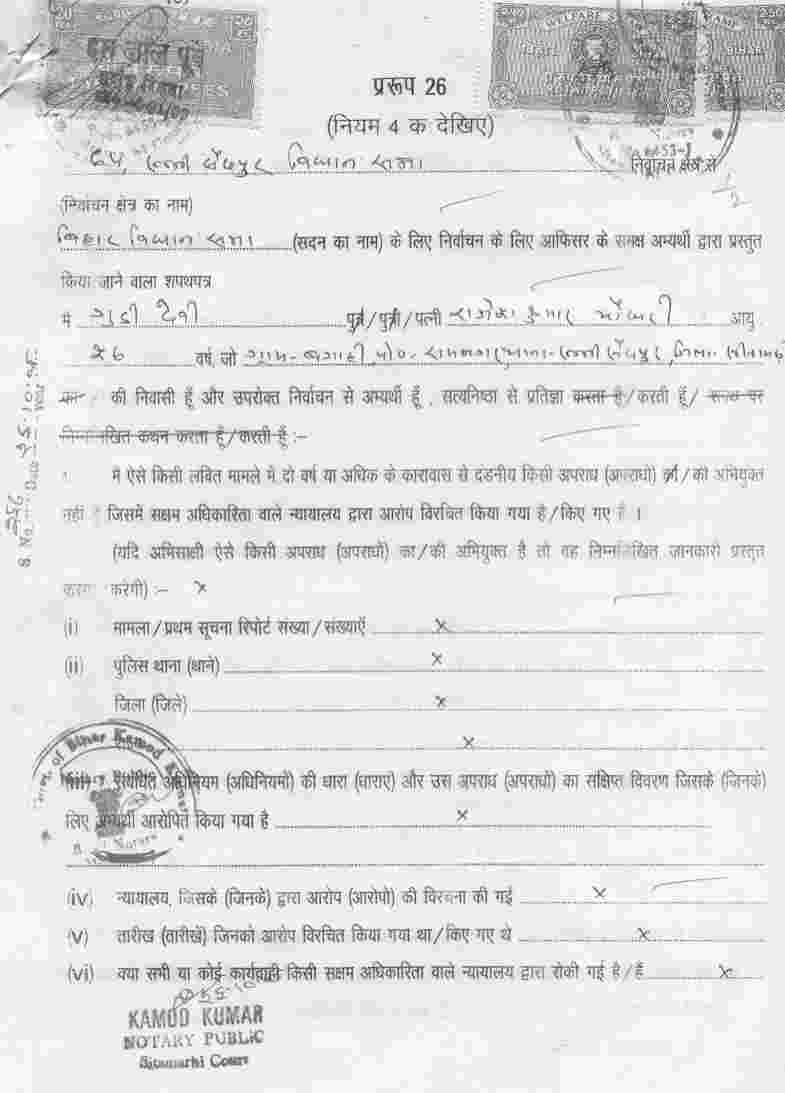 20
20
RS.
250
WELFARE
250
BIHAR
प्ररूप 26
(नियम 4 क देखिए)
विधान सभा निर्वाचन क्षेत्र से
1/2
(निर्वाचन क्षेत्र का नाम)
बिहार विधान सभा (सदन का नाम) के लिए निर्वाचन के लिए आफिसर के समक्ष अभ्यर्थी द्वारा प्रस्तुत
किया जाने वाला शपथपत्र
मैं गुड्डी देवी पुत्र/पुत्री/पत्नी कुमार चौधरी आयु
26 वर्ष, जो ग्राम- पो०- थाना- जिला-
का की निवासी हूँ और उपरोक्त निर्वाचन से अभ्यर्थी हूँ , सत्यनिष्ठा से प्रतिज्ञा करता हूँ/करती हूँ/ शपथ पर
निम्नलिखित कथन करता हूँ/करती हूँ :-
मैं ऐसे किसी लंबित मामले में दो वर्ष या अधिक के कारावास से दंडनीय किसी अपराध (अपराधों) का/की अभियुक्त
नहीं हूँ जिसमें सक्षम अधिकारिता वाले न्यायालय द्वारा आरोप विरचित किया गया है/किए गए हैं ।
(यदि अभिसाक्षी ऐसे किसी अपराध (अपराधों) का/की अभियुक्त है तो वह निम्नलिखित जानकारी प्रस्तुत
करेगी) :- x
(i) मामला/प्रथम सूचना रिपोर्ट संख्या/संख्याऐं x
(ii) पुलिस थाना (थाने) x
जिला (जिले) x
x
संबंधित अधिनियम (अधिनियमों) की धारा (धाराएं) और उस अपराध (अपराधों) का संक्षिप्त विवरण जिसके (जिनके)
लिए अभ्यर्थी आरोपित किया गया है x
(iv) न्यायालय, जिसके (जिनके) द्वारा आरोप (आरोपो) की विरचना की गई x
(v) तारीख (तारीखें) जिनको आरोप विरचित किया गया था/किए गए थे x
(vi) क्या सभी या कोई कार्यवाही किसी सक्षम अधिकारिता वाले न्यायालय द्वारा रोकी गई है/हैं x
KAMOD KUMAR
NOTARY PUBLIC
Sitamarhi Court
S. No. Date
of Bihar Kamod
Notary